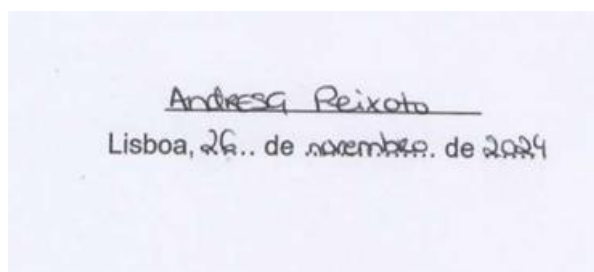 Andresa Peixoto
Lisboa, 26.. de novembro. de 2024